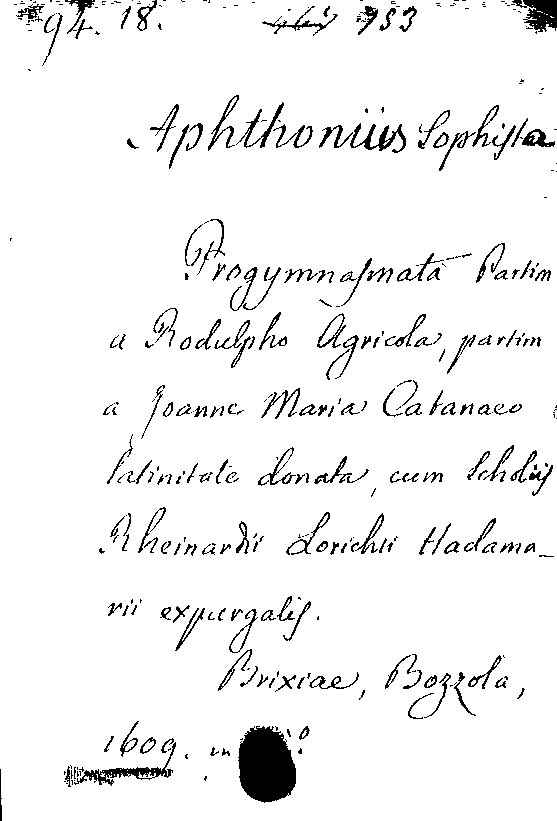 94. 18. 933
Aphthoniüs Sophista
Progymnasmata Partim
a Rodulpho Agricola, partim
a Joanne Maria Catanaeo
latinitate donata, cum Scholiis
Rheinardii Lorichii Hadama_
rii expurgatis.
Brixiae, Bozzola,
1609. in